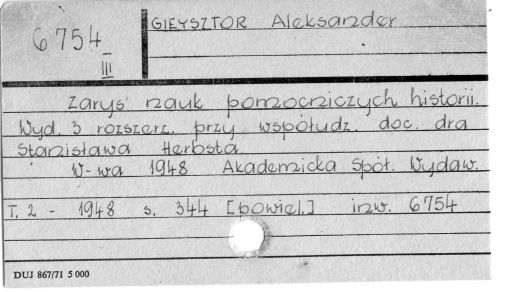 GIEYSZTOR Aleksander
6754
III
Zarys nauk pomocniczych historii.
Wyd. 3 rozszerz. przy współudz. doc. dra
Stanisława Herbsta.
W-wa 1948 Akademicka Spół. Wydaw.
T. 2 - 1948 s. 344 [powiel.] inw. 6754
DUJ 867/71 5 000